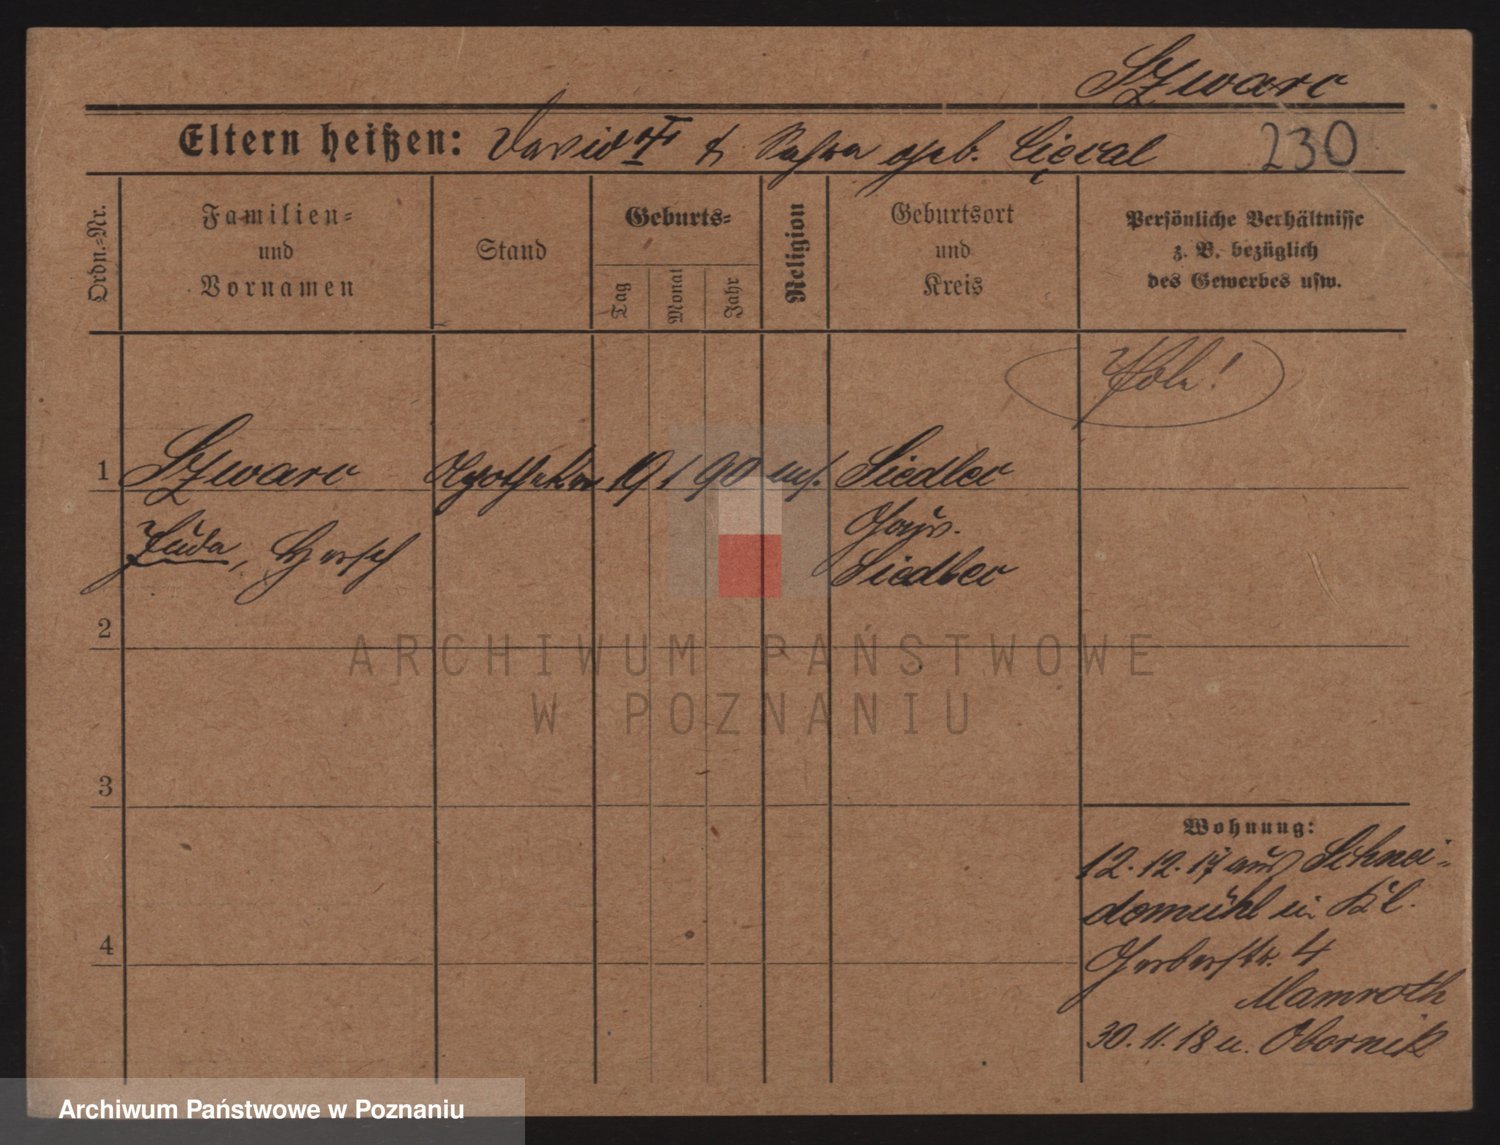 Szwarc
Eltern heißen: David & geb. 230
Ordn.-Nr.
Familien-
und
Vornamen
Stand
Geburts-
Tag
Monat
Jahr
Religion
Geburtsort
und
Kreis
Persönliche Verhältnisse
z. B. bezüglich
des Gewerbes usw.
Pole!
1 Szwarc Apotheker 19 1 90 mos. Siedlec
Gouv.
Juda, Hersch Siedlec
2
ARCHIWUM PAŃSTWOWE
W POZNANIU
3
Wohnung:
12.12.17 aus Schnei-
demühl in Kl.
4
Gerberstr. 4
Mamroth
30.11.18 n. Obornik
Archiwum Państwowe w Poznaniu